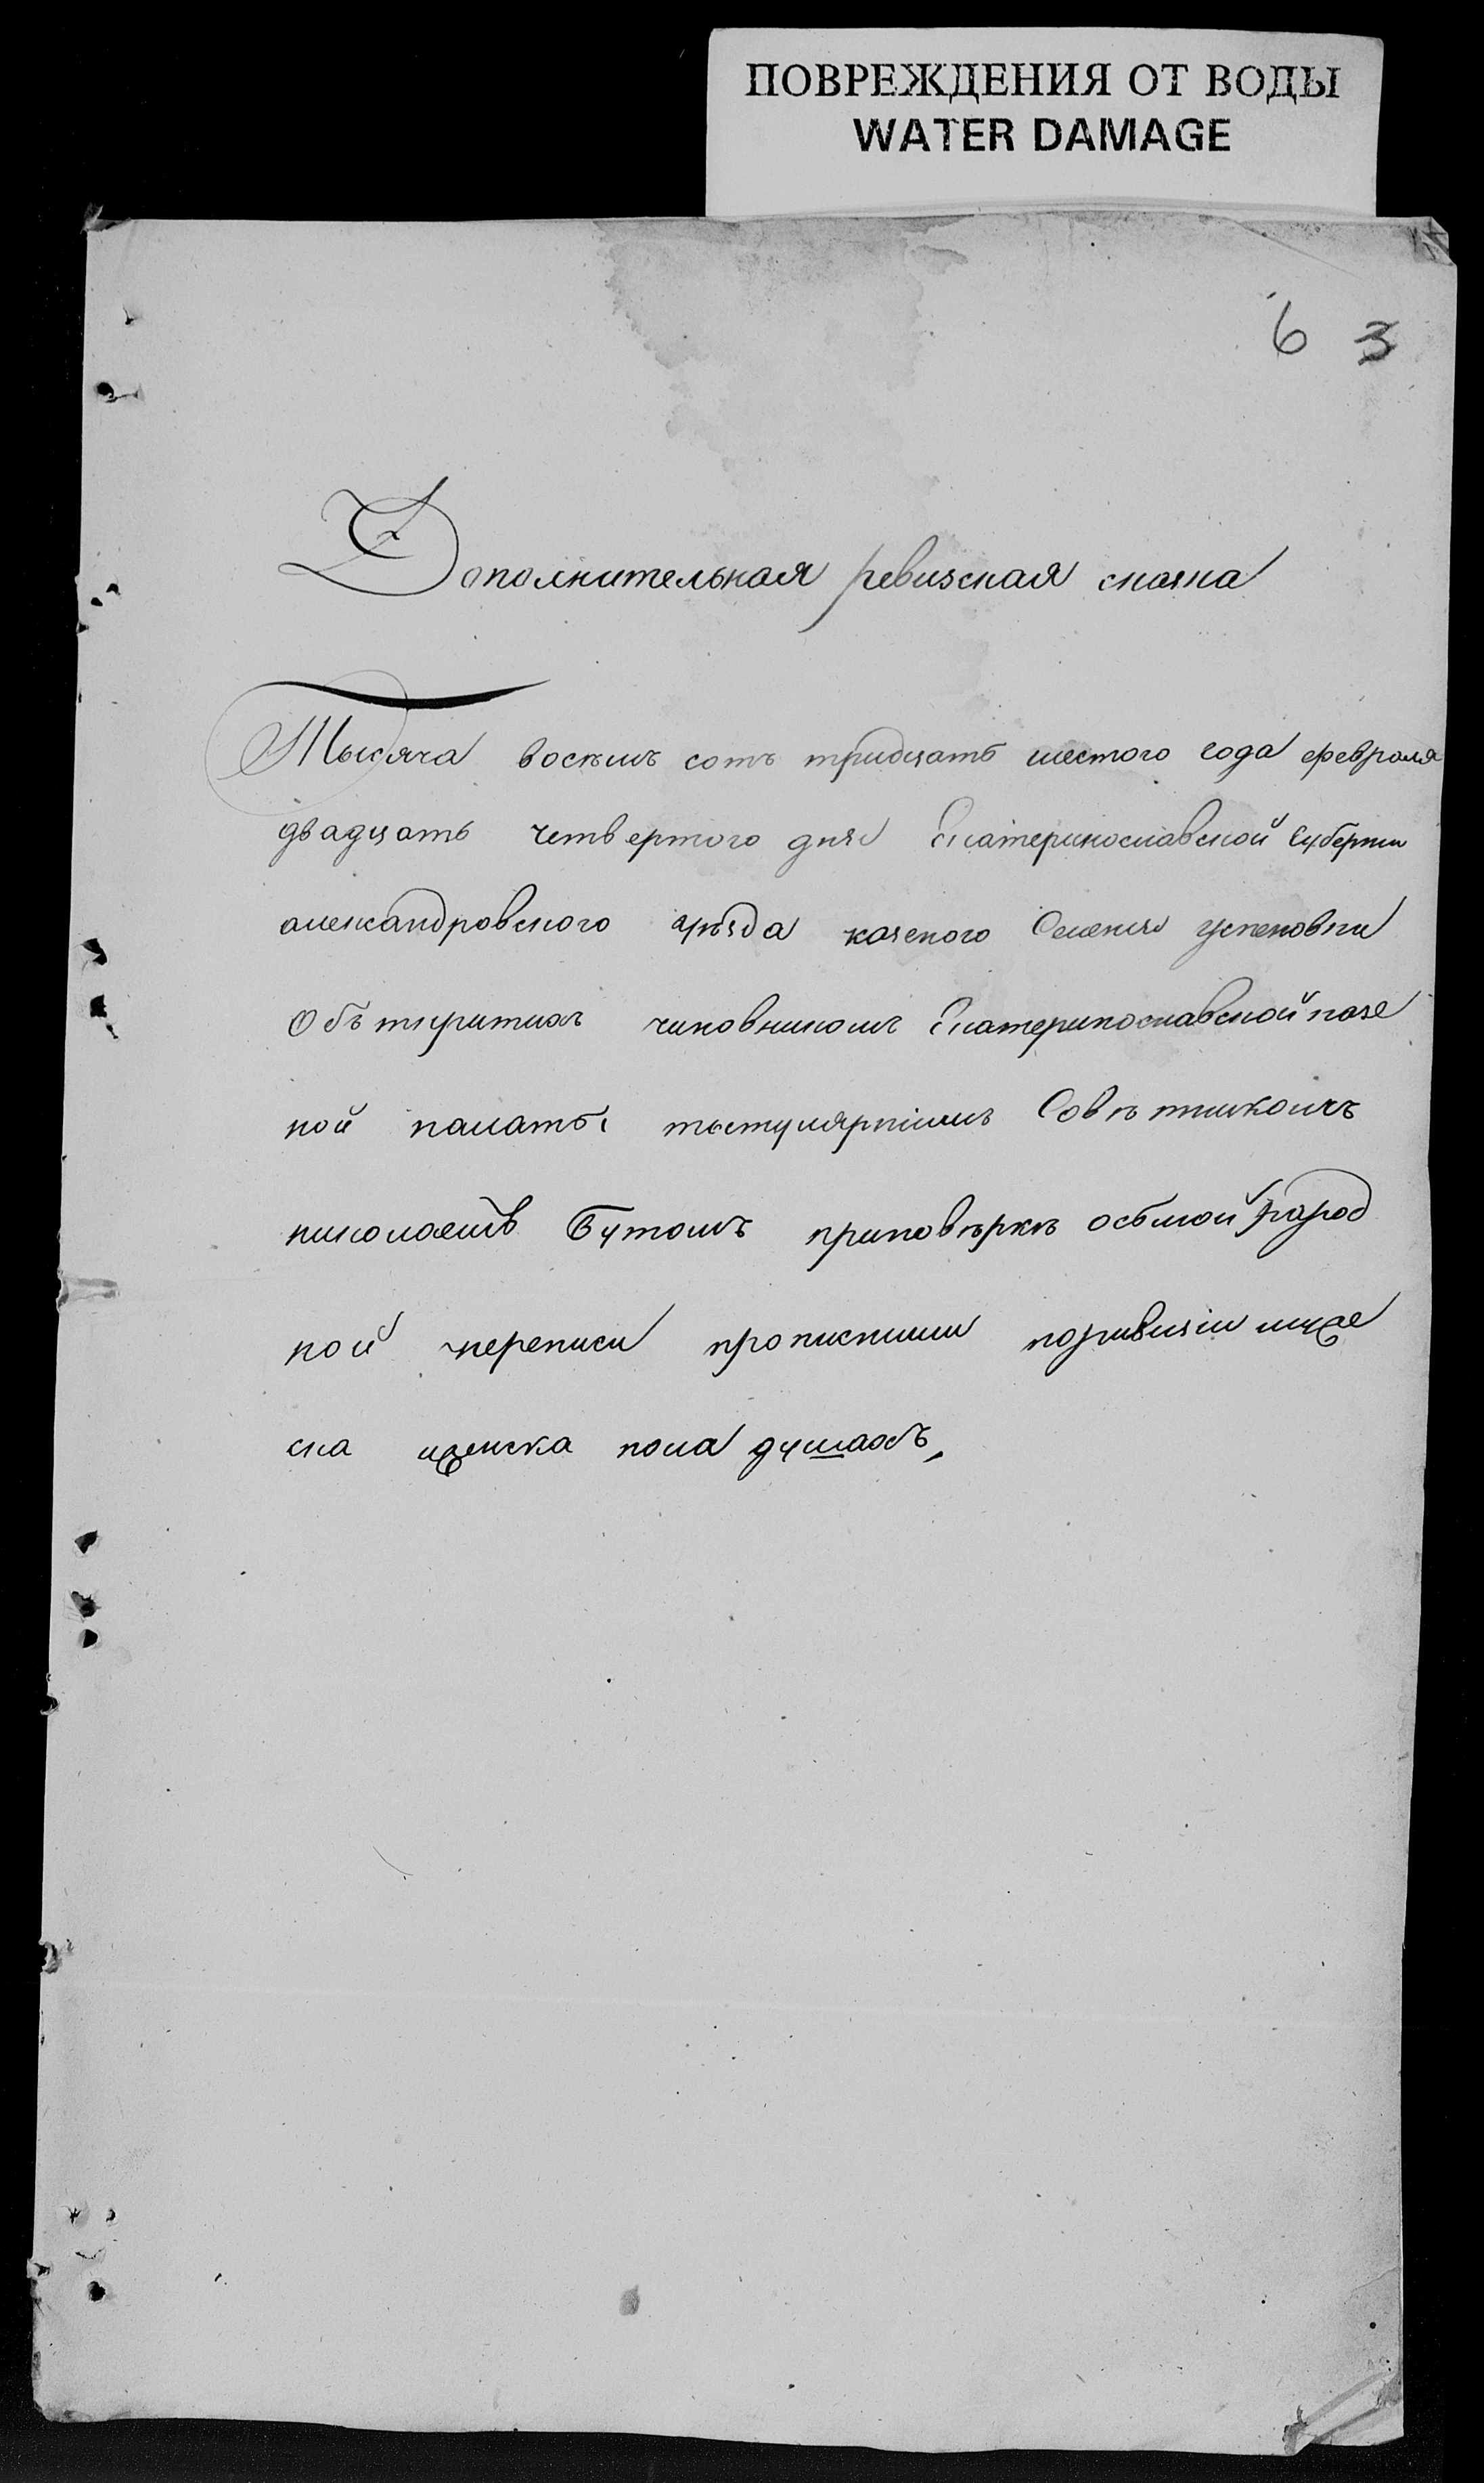 ПОВРЕЖДЕНИЯ ОТ ВОДЫ
WATER DAMAGE
6 3
Дополнительная ревизская сказка
Тысяча восемъ сотъ тридцать шестого года февраля
двадцать четвертого дня Екатеринославской Губернии
александровского уезда казеного Селения успеновки
Объ чиновникомъ Екатеринославской казе
ной палаты Советникомъ
Бутомъ приповѣрке осьмой народ
ной переписи поривизии муже
ска иженска пола душахъ,